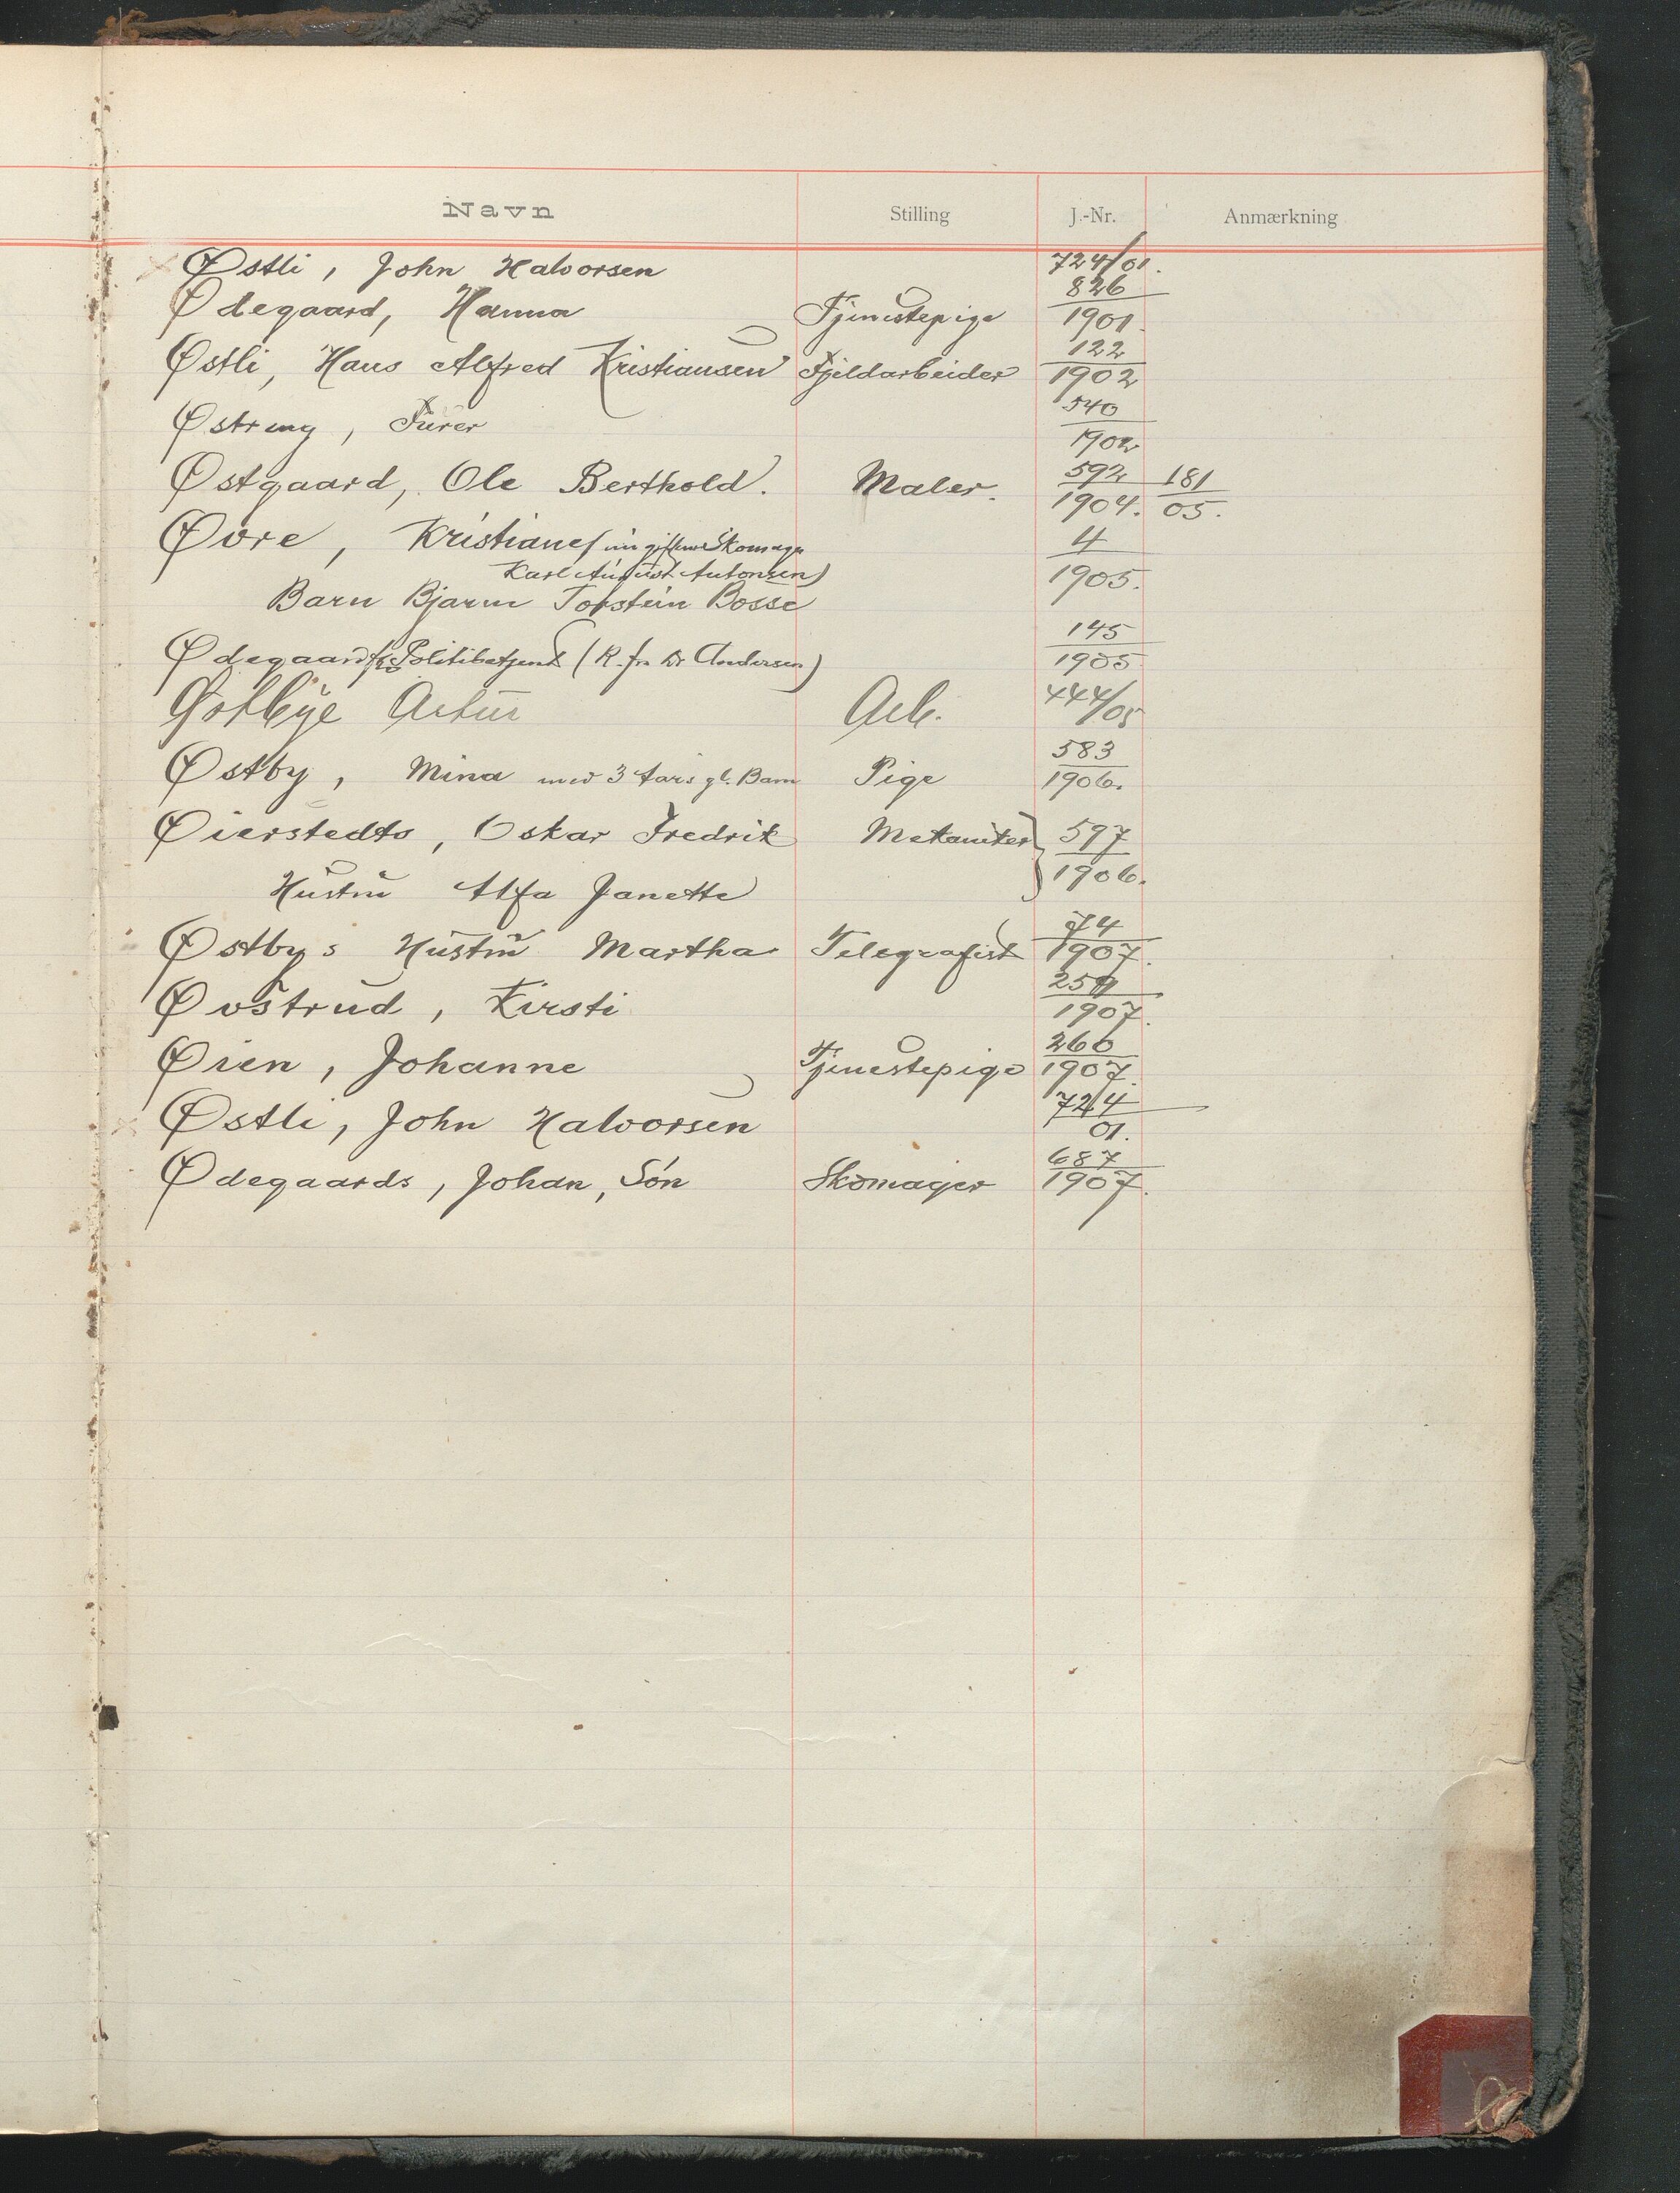 Navn Stilling J.-Nr. Anmærkning
Østli, John Halvorsen 724/01.
Ødegaard, Hanna Tjenestepige 826/1901.
Østli, Hans Alfred Kristiansen Fjeldarbeider 122/1902
Østreng, 540/1902
Østgaard, Ole Berthold. Maler. 592/1904. 181/05.
Øvre, Kristiane (nu gift med Skomager 4/1905.
Karl August Antonsen)
Barn Bjarne Torstein Bosse
Ødegaard Politibetjent (R. fra Dr Andersen) 145/1905
Østbye Artur Arb. 444/05
Østby, Mina med 3 Aars gl. Barn Pige 583/1906.
Øierstedts, Oskar Fredrik Mekaniker 597/1906.
Hustru Alfa Janette
Østbys Hustru Martha Telegrafist 74/1907.
Øvstrud, Kirsti 1907.
Øien, Johanne Tjenestepige 266/1907.
Østli, John Halvorsen 724/01.
Ødegaards, Johan, Søn Skomager 687/1907.